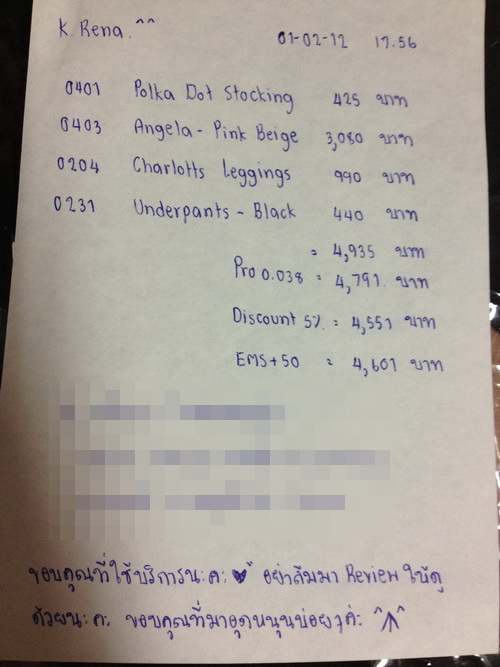 K. Rena. ^^
01-02-12 17.56
0401 Polka Dot Stocking 425 บาท
0403 Angela - Pink Beige 3,080 บาท
0204 Charlotts Leggings 990 บาท
0231 Underpants - Black 440 บาท
= 4,935 บาท
Pro 0.038 = 4,791. บาท
Discount 5% = 4,551 บาท
EMS+50 = 4,601 บาท
ขอบคุณที่ใช้บริการนะคะ ♥ อย่าลืมมา Review ให้ดู
ด้วยนะคะ ขอบคุณที่มาอุดหนุนบ่อยๆค่ะ ^/\^